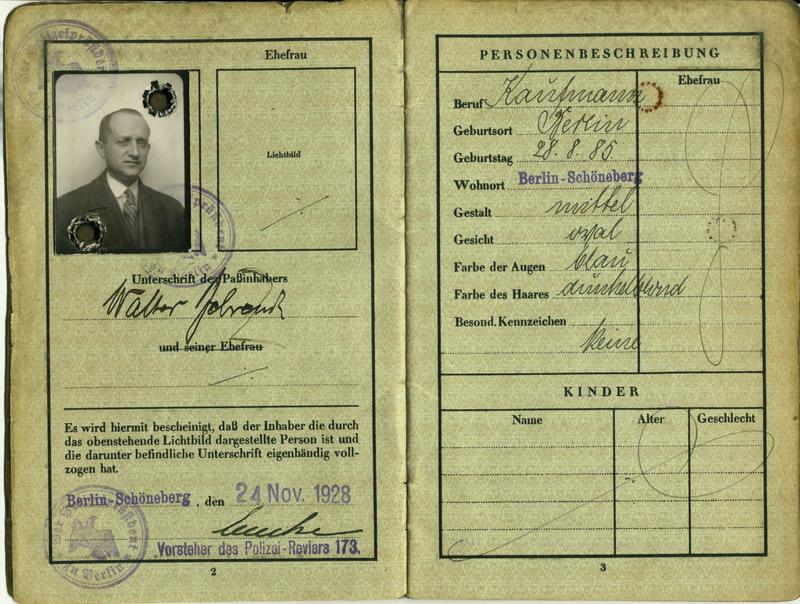 Ehefrau
Lichtbild
Unterschrift des Paßinhabers
Walter
und seiner Ehefrau
Es wird hiermit bescheinigt, daß der Inhaber die durch
das obenstehende Lichtbild dargestellte Person ist und
die darunter befindliche Unterschrift eigenhändig voll-
zogen hat.
Berlin-Schöneberg, den 24 Nov. 1928
Vorsteher des Polizei-Reviers 173.
2
PERSONENBESCHREIBUNG
Ehefrau
Beruf Kaufmann
Geburtsort Berlin
Geburtstag 28. 8. 85
Wohnort Berlin-Schöneberg
Gestalt mittel
Gesicht oval
Farbe der Augen blau
Farbe des Haares dunkelblond
Besond. Kennzeichen
keine
KINDER
Name Alter Geschlecht
3